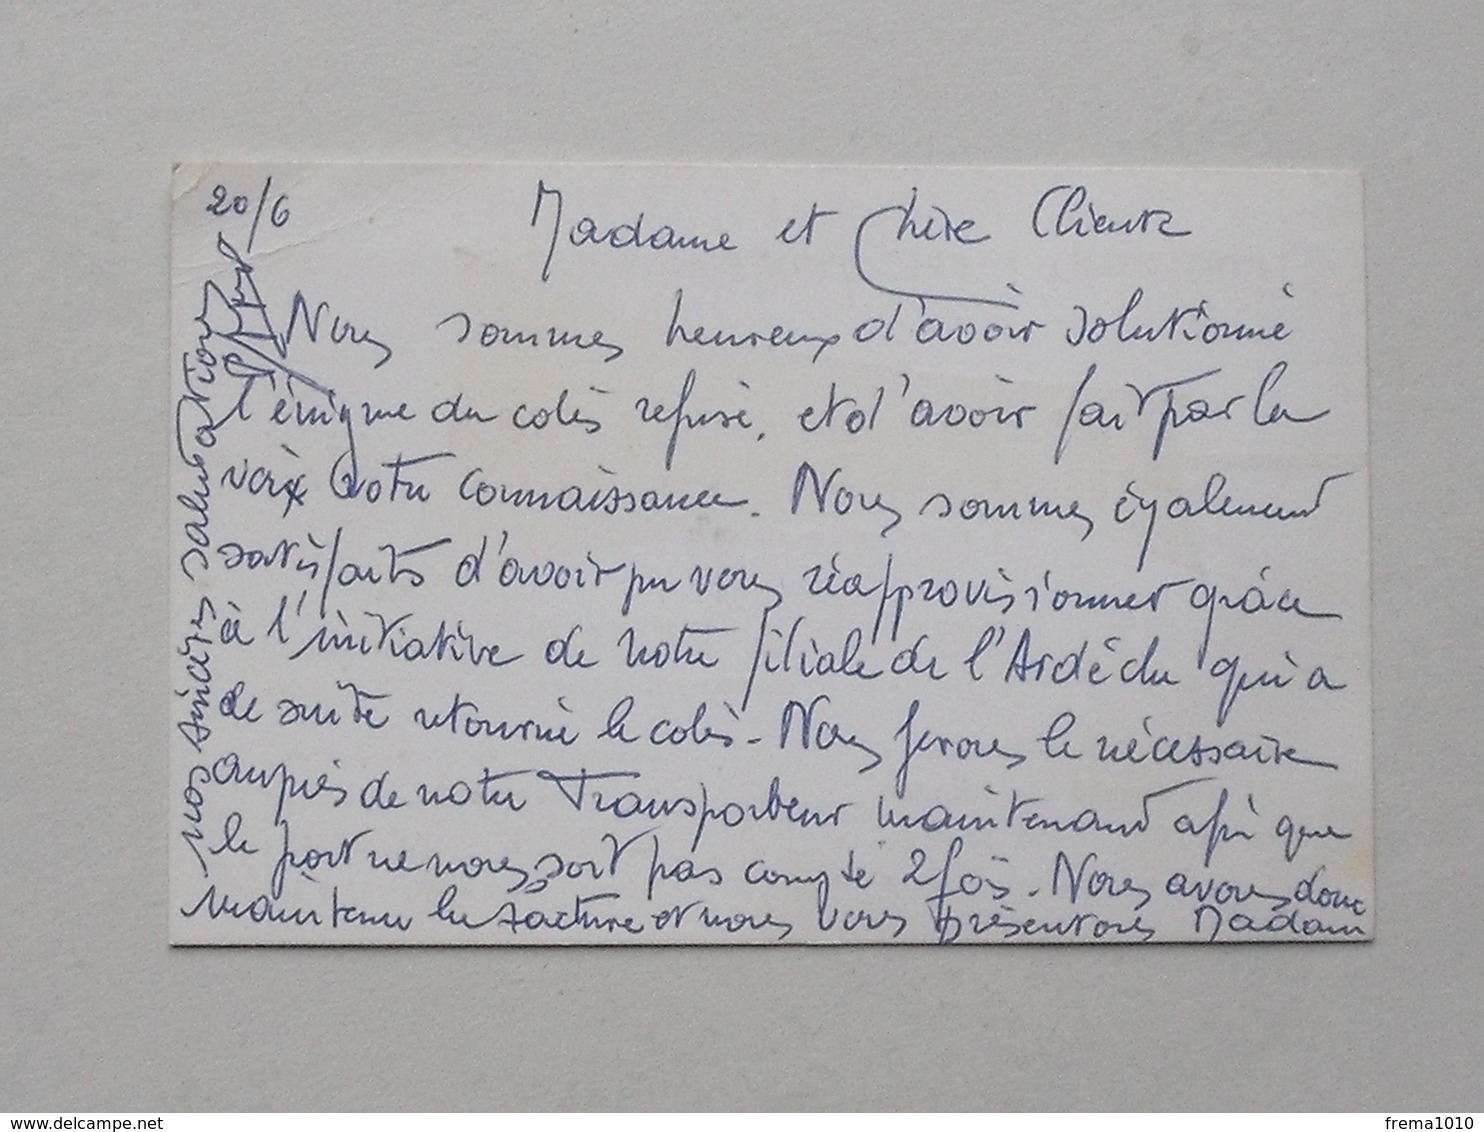 20/6
Madame et chère Cliente
Nous sommes heureux d'avoir solutionné
l'énigme du colis refusé, et d'avoir fait par la
voix votre connaissance. Nous sommes également
satisfaits d'avoir pu vous réapprovisionner grâce
à l'initiative de notre filiale de l'Ardèche qui a
de suite retourné le colis - Nous ferons le nécessaire
auprès de notre Transporteur maintenant afin que
le port ne nous soit pas compté 2 fois. Nous avons donc
maintenu la facture et nous vous présentons Madame
nos sincères salutations
delcampe.net
frema1010